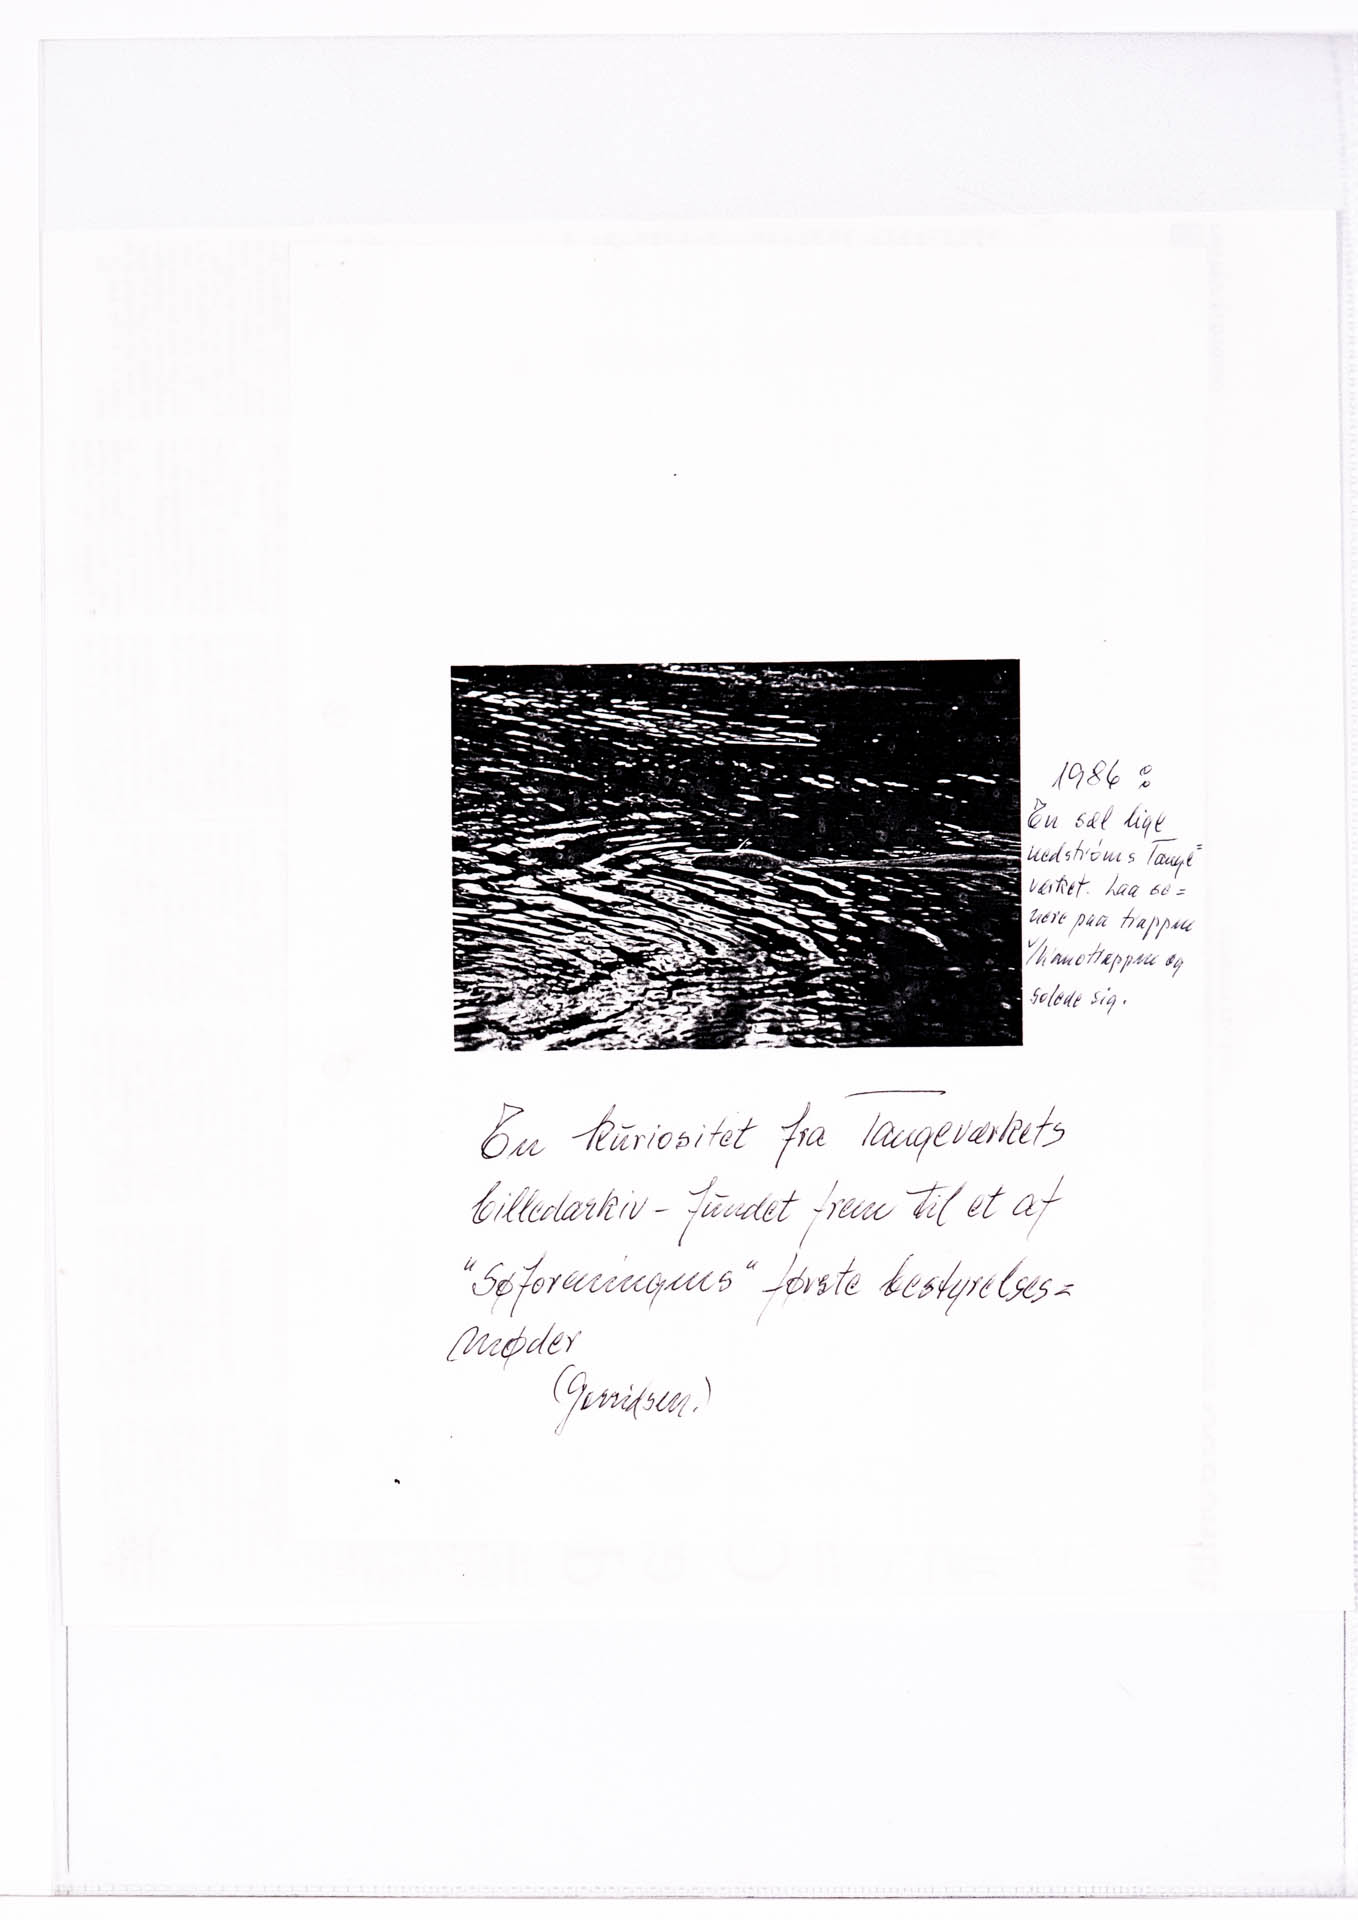 1986 :
En sæl lige
nedstrøms Tange=
værket. Laa se=
nere paa trappen
v/kanotrappen og
solede sig.
En kuriositet fra Tangeværkets
billedarkiv - fundet frem til et af
"Søforeningens" første bestyrelses=
møder
(Gorridsen.)